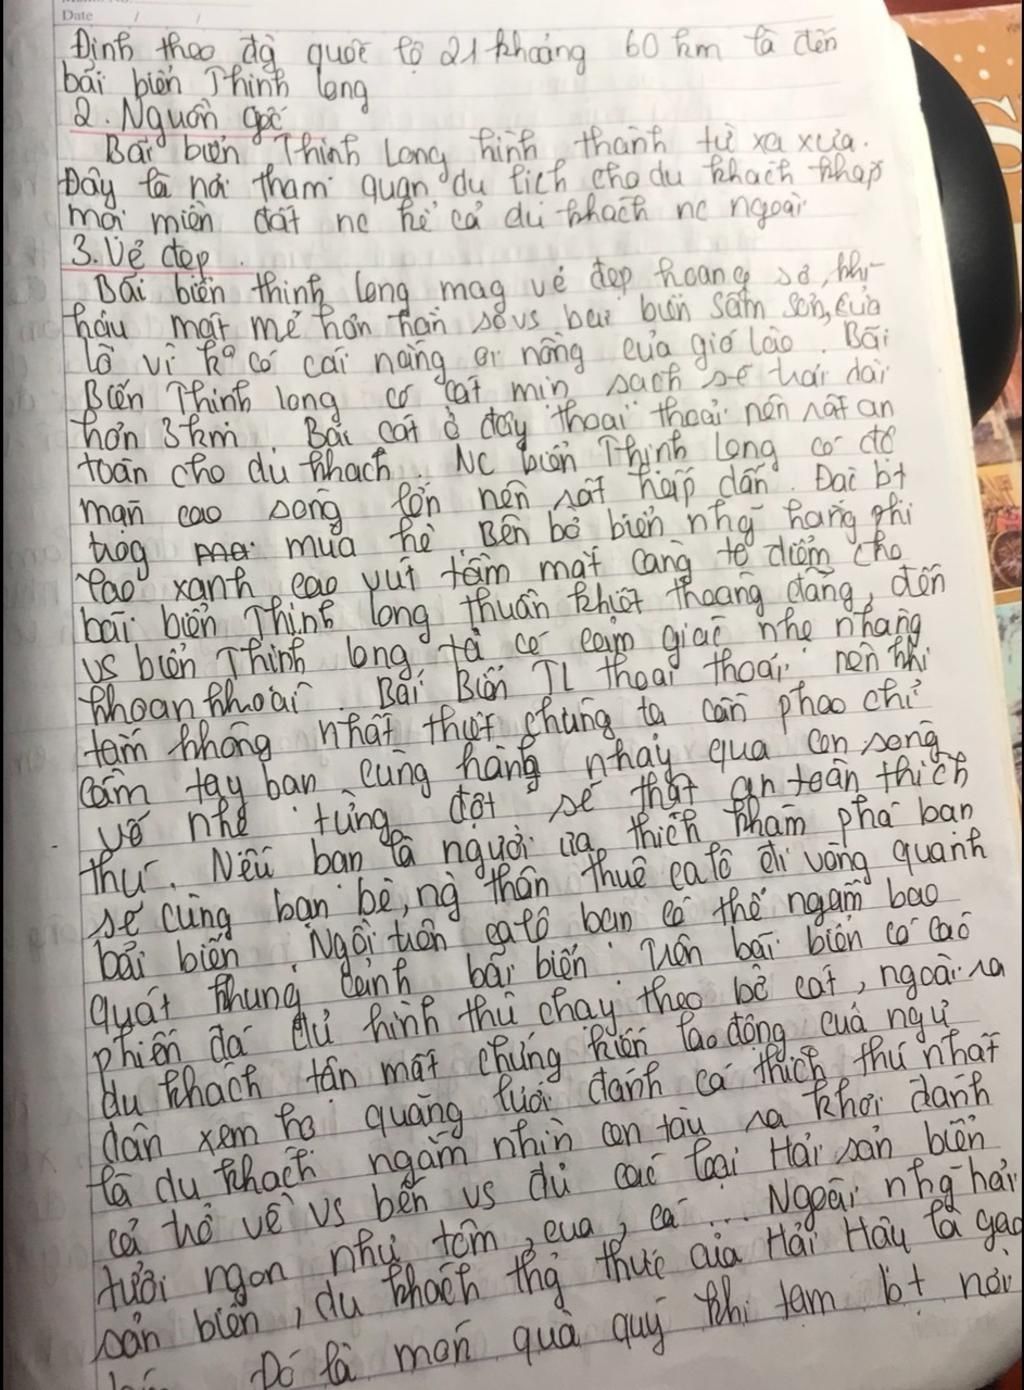 Date / /
Định theo đg quốc lộ 21 khoảng 60 km là đến
bãi biển Thịnh Long
2. Nguồn gốc
Bãi biển Thịnh Long hình thành từ xa xưa.
Đây là nơi tham quan du lịch cho du khách khắp
mọi miền đất nc kể cả du khách nc ngoài
3. Vẻ đẹp
Bãi biển thịnh long mag vẻ đẹp hoang sơ, khí
hậu mát mẻ hơn hẳn so vs bãi biển Sầm Sơn, Cửa
lò vì ko có cái nắng nóng của gió lào. Bãi
Biển Thịnh long có cát mịn sạch sẽ trải dài
hơn 3km. Bãi cát ở đây thoai thoải nên rất an
toàn cho du khách. NC biển Thịnh Long có độ
mặn cao sóng lớn nên rất hấp dẫn. Đặc bt
trog mùa hè. Bên bờ biển nhg hàng phi
lao xanh cao vút tầm mắt càng tô điểm cho
bãi biển Thịnh long thuần khiết thoáng đãng, đến
vs biển Thịnh long ta có cảm giác nhẹ nhàng
khoan khoái. Bãi Biển TL thoai thoải nên khi
tắm không nhất thiết chúng ta cần phao chỉ
cầm tay bạn cùng hàng nhảy qua con sóng
vỗ nhẹ từng đợt sẽ thật an toàn thích
thú. Nếu bạn là người ưa thích khám phá bạn
sẽ cùng bạn bè, ng thân thuê ca lô đi vòng quanh
bãi biển. Ngồi trên ca lô bạn có thể ngắm bao
quát khung cảnh bãi biển. Trên bãi biển có các
phiến đá đủ hình thù chạy theo bờ cát, ngoài ra
du khách tận mắt chứng kiến lao động của ngư
dân xem họ quăng lưới đánh cá thích thú nhất
là du khách ngắm nhìn con tàu ra khơi đánh
cá trở về vs bến vs đủ các loại Hải sản biển
tươi ngon như tôm, cua, cá ... Ngoài nhg hải
sản biển, du khách thg thức của Hải Hậu là gạo
Đó là món quà quý khi tạm bt nơi